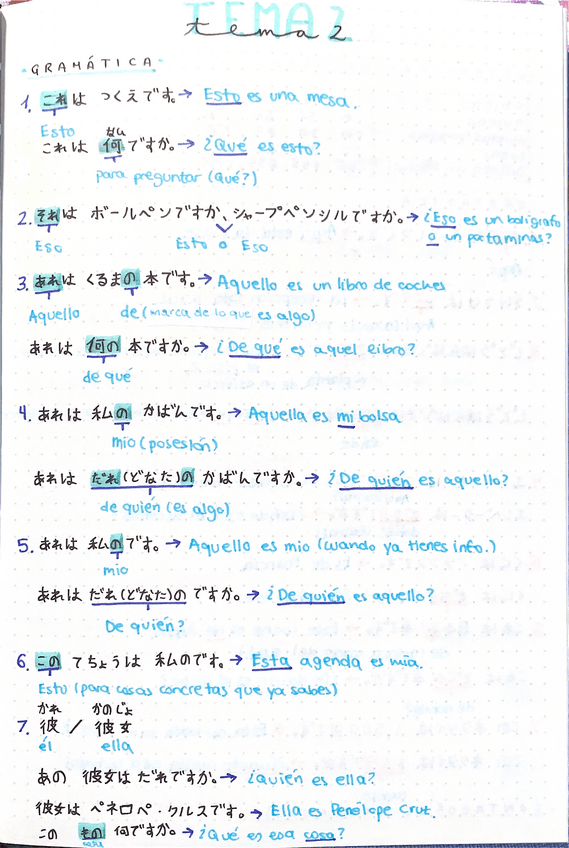 TEMA 2
tema 2
GRAMÁTICA
1. これは つくえです。→ Esto es una mesa.
Esto
なに
これは 何ですか。→ ¿Qué es esto?
para preguntar (Qué?)
2. それは ボールペンですか、シャープペンシルですか。→ ¿Eso es un bolígrafo
Eso Esto o Eso o un portaminas?
3. あれは くるまの本です。→ Aquello es un libro de coches
Aquello de (marca de lo que es algo)
あれは 何の 本ですか。→ ¿De qué es aquel libro?
de qué
4. あれは 私の かばんです。→ Aquella es mi bolsa
mio (posesión)
あれは だれ(どなた)の かばんですか。→ ¿De quién es aquello?
de quién (es algo)
5. あれは 私のです。→ Aquello es mio (cuando ya tienes info.)
mio
あれは だれ(どなた)の ですか。→ ¿De quién es aquello?
De quién?
6. この てちょうは 私のです。→ Esta agenda es mía.
Esto (para cosas concretas que ya sabes)
かれ かのじょ
7. 彼 / 彼女
él ella
あの 彼女は だれですか。→ ¿Quién es ella?
彼女は ペネロペ・クルスです。→ Ella es Penélope Cruz.
この もの 何ですか。→ ¿Qué es esa cosa?